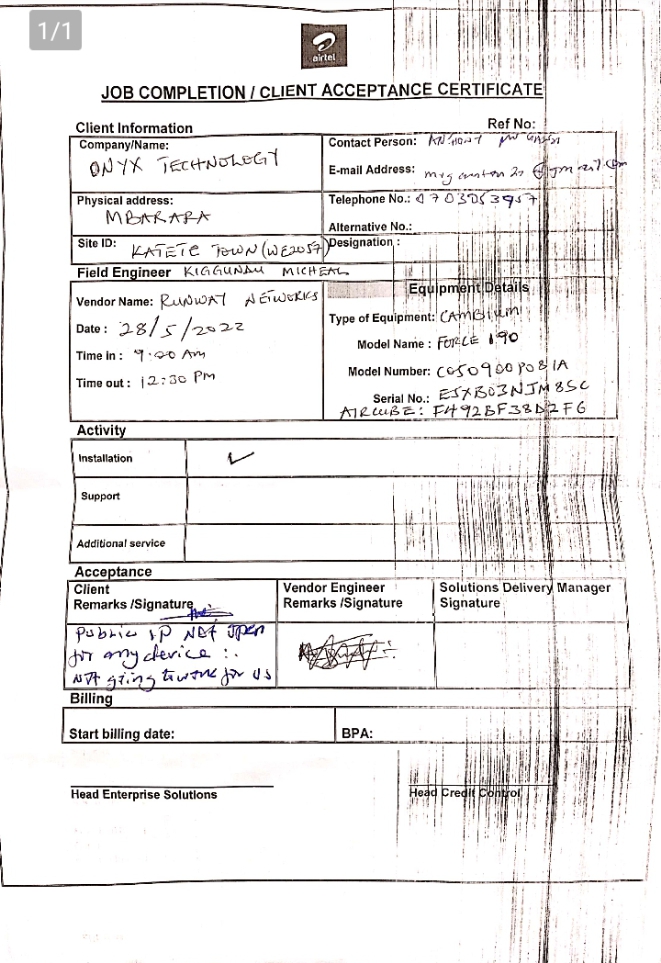 1/1
airtel
JOB COMPLETION / CLIENT ACCEPTANCE CERTIFICATE
Client Information
Ref No:
Company/Name:
ONYX TECHNOLOGY
Contact Person:
E-mail Address:
Physical address:
MBARARA
Telephone No.: 0703053957
Alternative No.:
Site ID: KATETE TOWN (WE2057)
Designation :
Field Engineer KIGGUNDU MICHEAL
Vendor Name: RUNWAY NETWORKS
Date : 28/5/2022
Time in : 9:00 Am
Time out : 12:30 PM
Equipment Details
Type of Equipment: CAMBIUM
Model Name : FORCE 190
Model Number: C050900P081A
Serial No.: E5XB03NJM8SC
AIRCUBE: F492BF38D2F6
Activity
Installation ✓
Support
Additional service
Acceptance
Client
Remarks /Signature
Public IP Not open
for any device :.
Not going to work for us
Vendor Engineer
Remarks /Signature
Solutions Delivery Manager
Signature
Billing
Start billing date:
BPA:
Head Enterprise Solutions
Head Credit Control